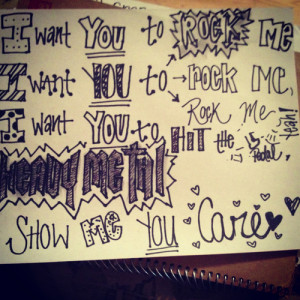 I want YOU to ROCK Me
I WANT YOU to rock ME,
Rock Me, yeah!
I want YOU to HIT the Pedal
HEAVY METAl
SHOW ME YOU Care